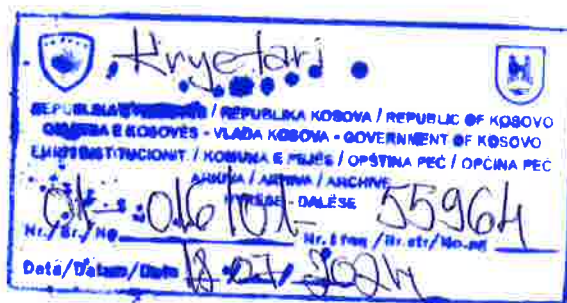 Kryetari
REPUBLIKA / REPUBLIKA KOSOVA / REPUBLIC OF KOSOVO
E KOSOVËS - VLADA KOSOVA - GOVERNMENT OF KOSOVO
/ KOMUNA E PEJËS / OPŠTINA PEĆ / OPĆINA PEĆ
ARKIVA / ARHIVA / ARCHIVE
- DALËSE
01- 016/01- 55964
Nr./Br./No. Nr. i faq /Br.str/No.pg
Data/Datum/Date 18.07.2024